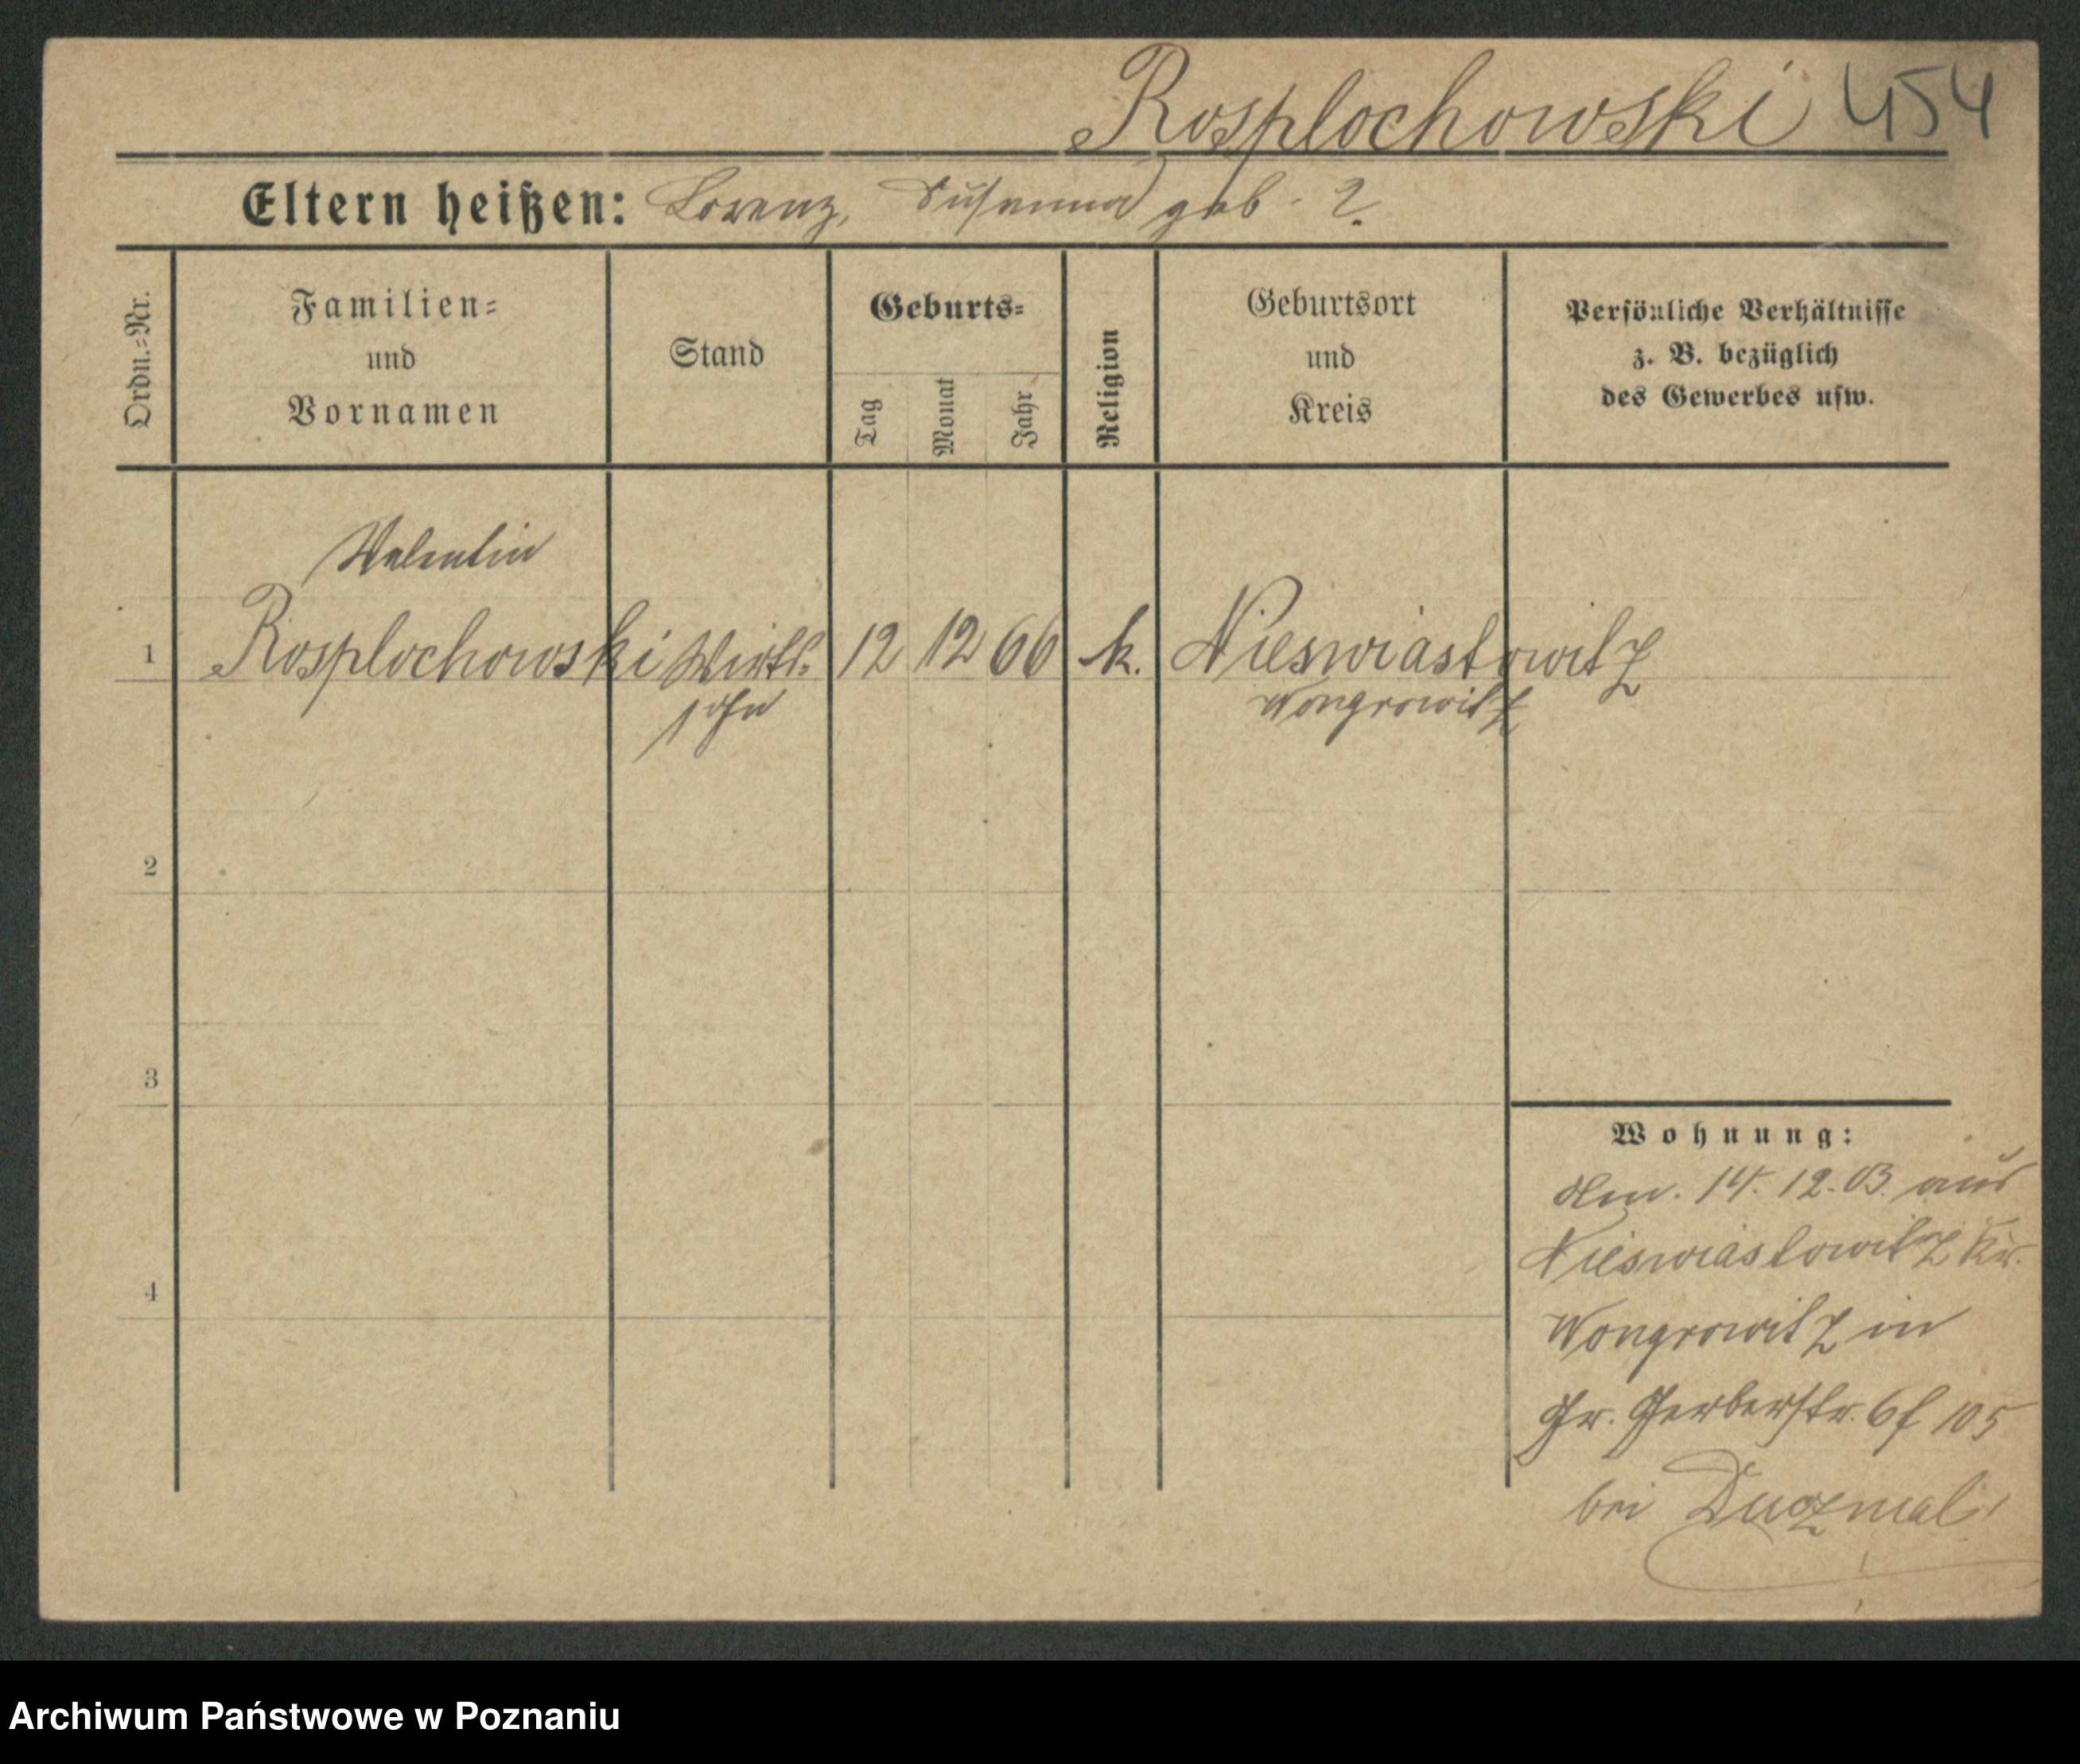 Rosplochowski 454
Eltern heißen: Lorenz, Susanna geb. ?
Ordn.=Nr.
Familien=
und
Vornamen
Stand
Geburts=
Tag
Monat
Jahr
Religion
Geburtsort
und
Kreis
Persönliche Verhältnisse
z. B. bezüglich
des Gewerbes usw.
Valentin
1 Rosplochowski Wirts= 12 12 66 k. Nieswiastowitz
sohn Wongrowitz
2
3
4
Wohnung:
14. 12. 03 aus
Nieswiastowitz Kr.
Wongrowitz in
Gr. Gerberstr. 6 f 105
bei
Archiwum Państwowe w Poznaniu